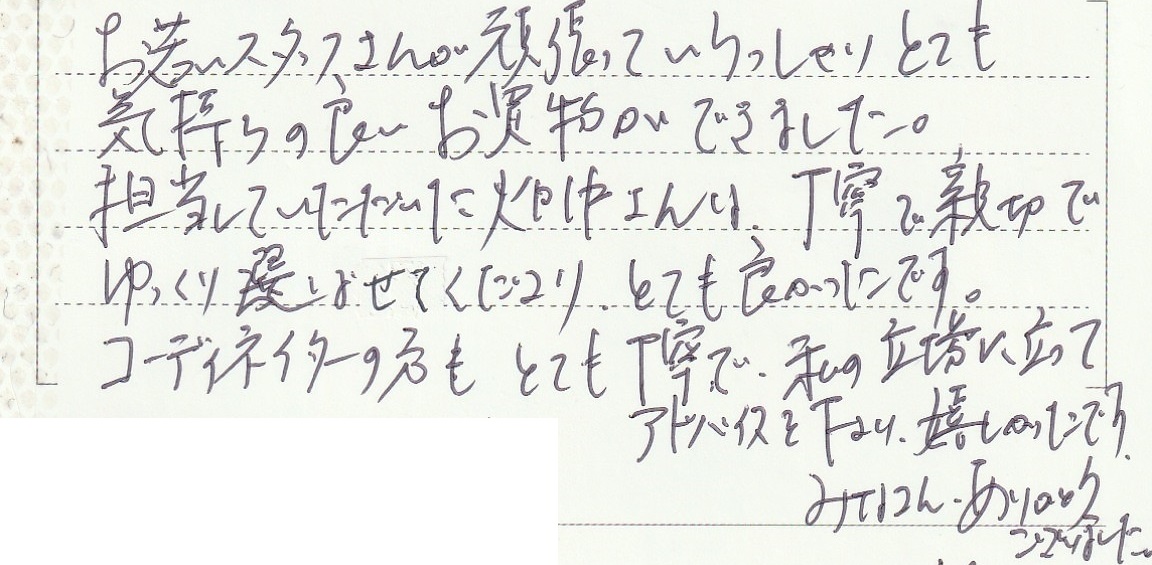 お若いスタッフさんが頑張っていらっしゃりとても
気持ちの良いお買物ができました。
担当していただいた畑中さんは、丁寧で親切で
ゆっくり選ばせてくださり、とても良かったです。
コーディネイターの方もとても丁寧で、私の立場に立って
アドバイスを下さり、嬉しかったです。
みなさん、ありがとう
ございました。